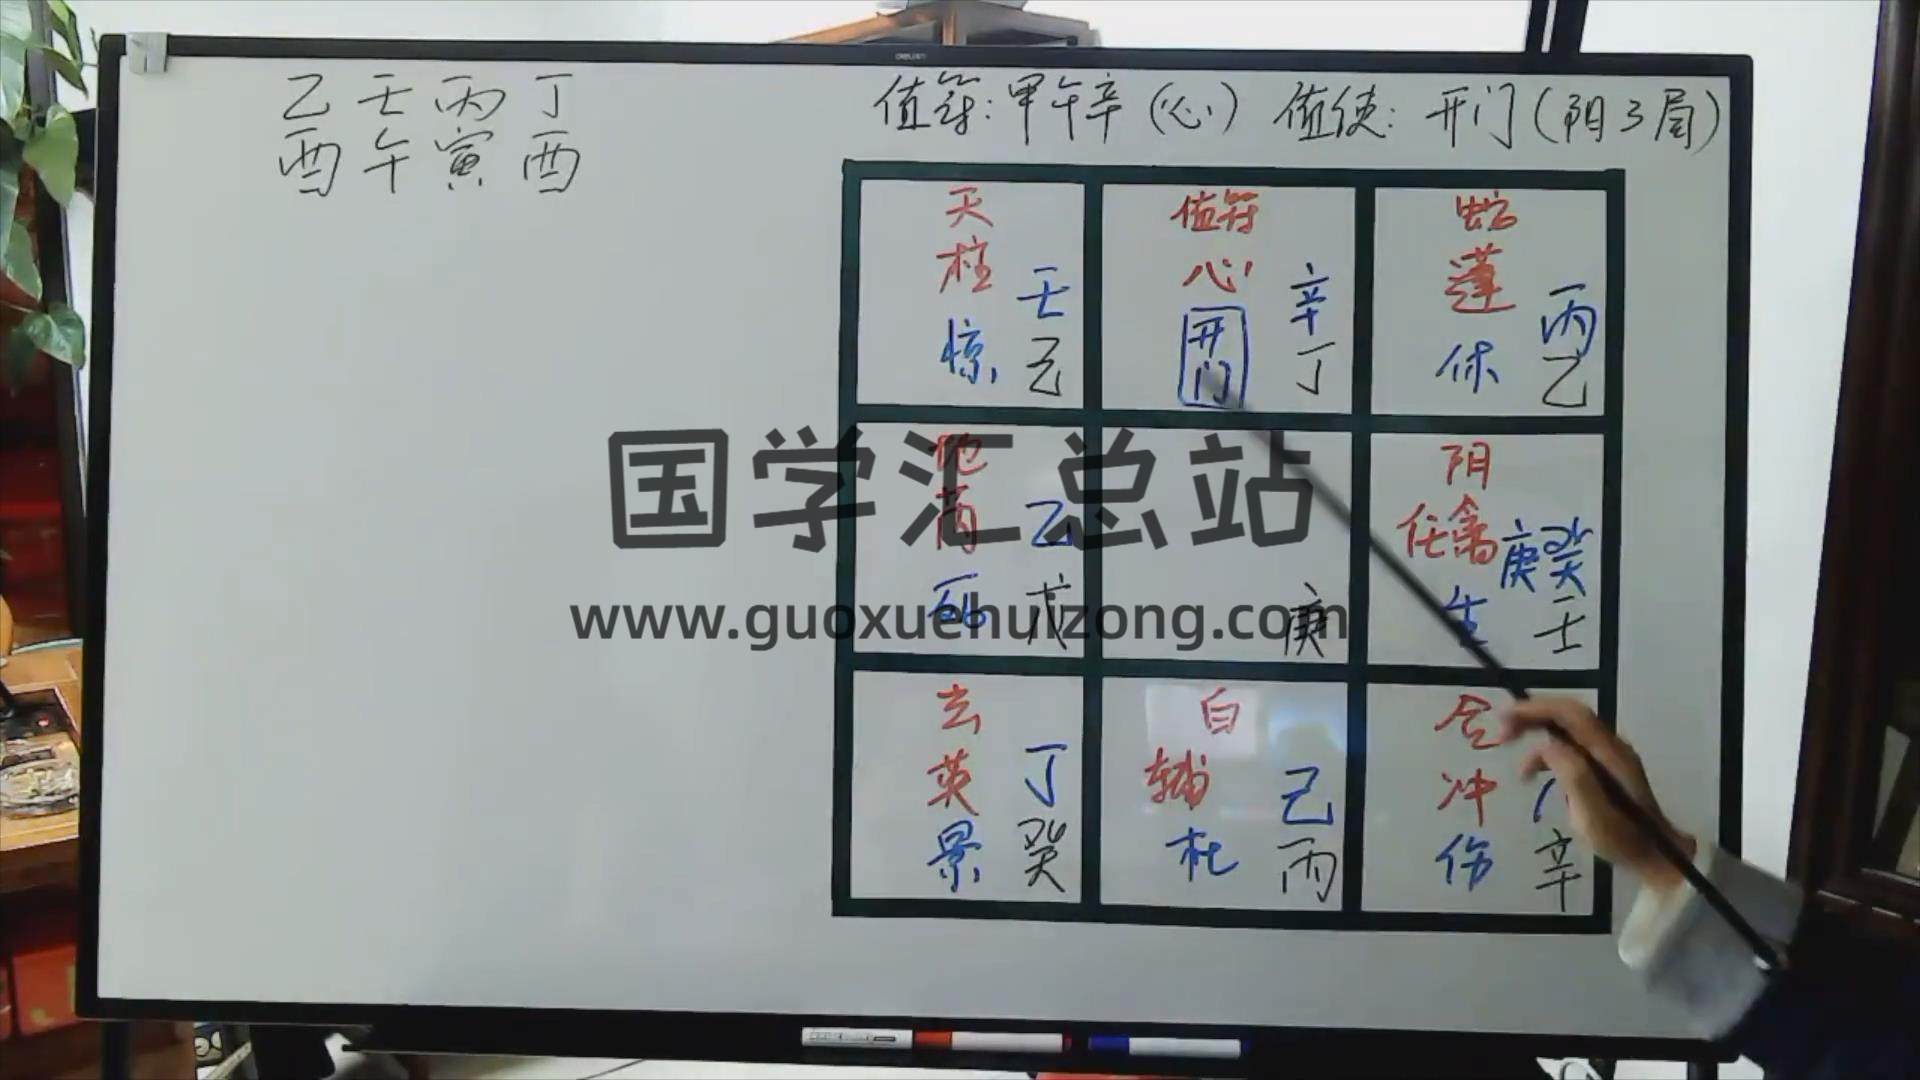 乙 壬 丙 丁
酉 午 寅 酉
值符: 甲午辛(心) 值使: 开门(阴3局)
天
柱 壬
惊 己
值符
心 辛
开门 丁
蛇
蓬 丙
休 乙
地
芮 乙
死 戊
庚
阴
任禽 庚癸
生 壬
玄
英 丁
景 癸
白
辅 己
杜 丙
合
冲
伤 辛
国学汇总站
www.guoxuehuizong.com
deli